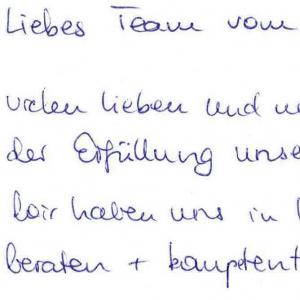 Liebes Team vom
vielen lieben und
der Erfüllung unse
Wir haben uns in
beraten + kompetent